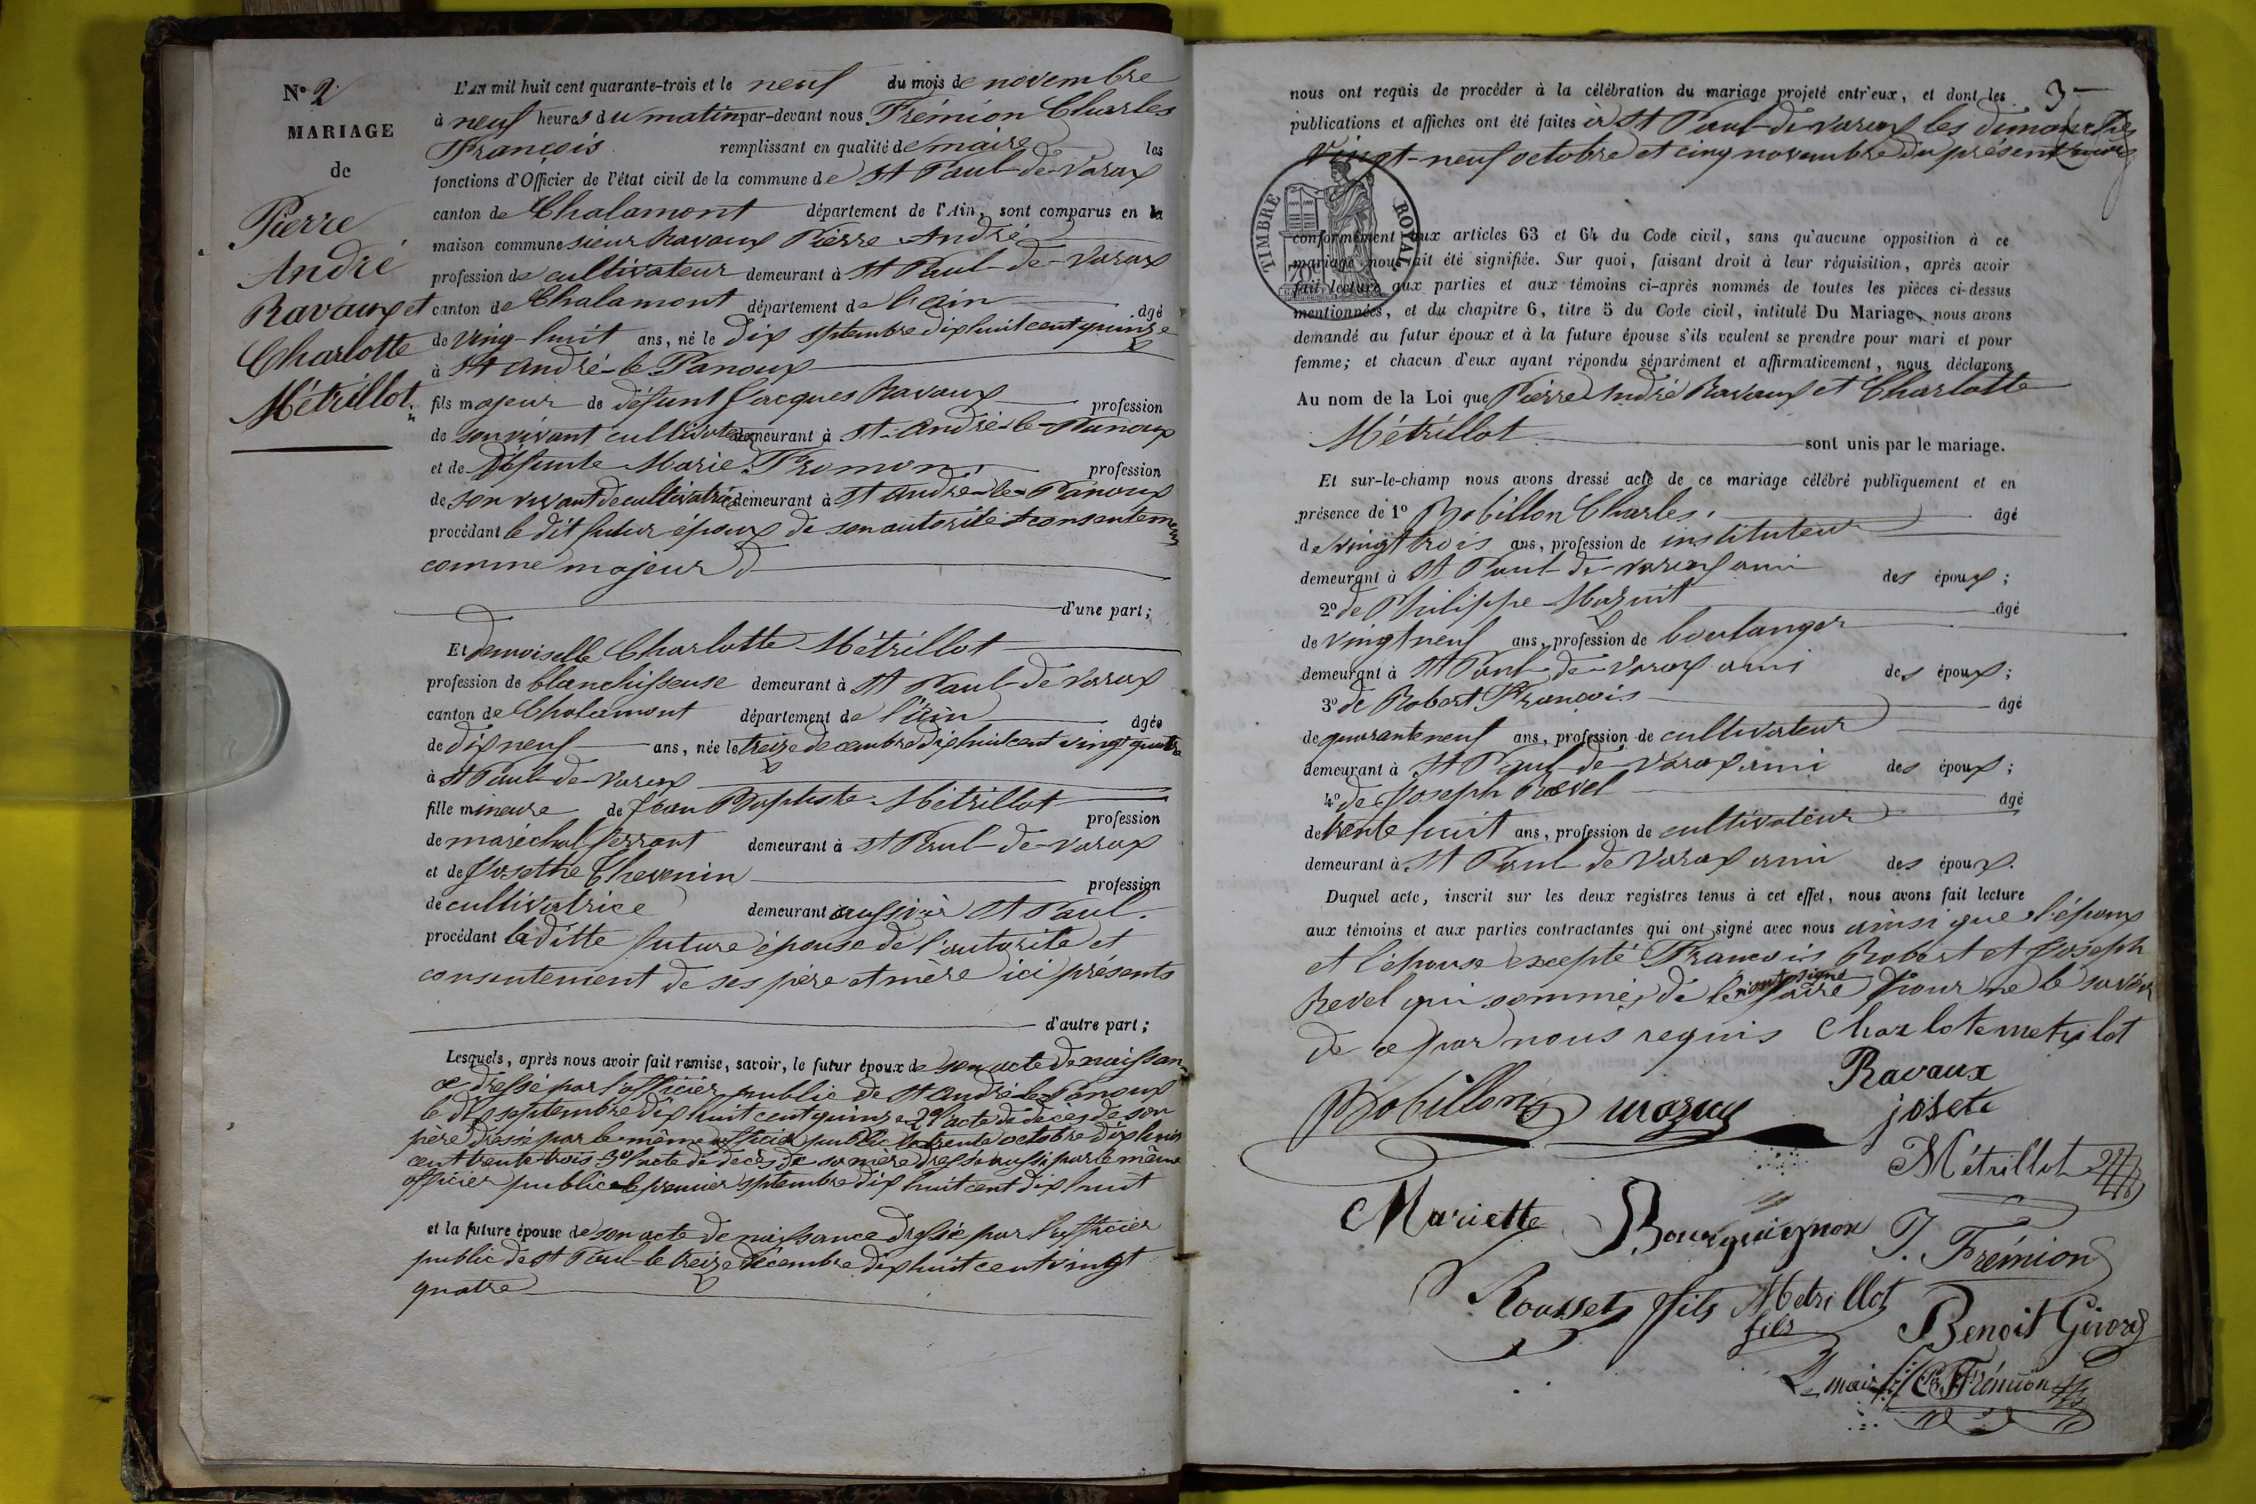 N° 2
MARIAGE
de
Pierre
André
Ravaux et
Charlotte
Métrillot
L'AN mil huit cent quarante-trois et le neuf du mois de novembre
à neuf heures du matin par-devant nous Frémion Charles
François remplissant en qualité de maire les
fonctions d'Officier de l'état civil de la commune de St Paul-de-Varax
canton de Chalamont département de l'Ain, sont comparus en la
maison commune sieur Ravaux Pierre André
profession de cultivateur demeurant à St Paul-de-Varax
canton de Chalamont département de l'ain âgé
de ving-huit ans, né le dix septembre dix huit cent quinze
à St André-le-Panoux
fils majeur de défunt Jacques Ravaux profession
de son vivant cultivateur demeurant à St-André-le-Panoux
et de défunte Marie Fromon profession
de son vivant de cultivatrice demeurant à St André-le-Panoux
procédant le dit futur époux de son autorité et consentement
comme majeur
d'une part;
Et demoiselle Charlotte Métrillot
profession de blanchisseuse demeurant à St Paul-de-Varax
canton de Chalamont département de l'Ain âgée
de dix neuf ans, née le treize decembre dix huit cent vingt quatre
à St Paul-de-Varax
fille mineure de Jean Baptiste Métrillot profession
de maréchal ferrant demeurant à St Paul-de-Varax
et de Josethe Thevenin profession
de cultivatrice demeurant aussi à St Paul.
procédant la ditte future épouse de l'autorité et
consentement de ses père et mère ici présents
d'autre part;
Lesquels, après nous avoir fait remise, savoir, le futur époux de son acte de naissan
ce dressé par l'officier public de St André-le-Panoux
le dix septembre dix huit cent quinze 2° l'acte de décès de son
père dressé par le même officier public le trente octobre dix huit
cent trente trois 3° l'acte de décès de sa mère dressé aussi par le même
officier public le premier septembre dix huit cent dix huit
et la future épouse de son acte de naissance dressé par l'officier
public de St Paul le treize décembre dix huit cent vingt
quatre
3
nous ont requis de procéder à la célébration du mariage projeté entr'eux, et dont les
publications et affiches ont été faites à St Paul-de-Varax les dimanches
vingt-neuf octobre et cinq novembre du présent mois
TIMBRE ROYAL
conformément aux articles 63 et 64 du Code civil, sans qu'aucune opposition à ce
mariage nous ait été signifiée. Sur quoi, faisant droit à leur réquisition, après avoir
fait lecture aux parties et aux témoins ci-après nommés de toutes les pièces ci-dessus
mentionnées, et du chapitre 6, titre 5 du Code civil, intitulé Du Mariage, nous avons
demandé au futur époux et à la future épouse s'ils veulent se prendre pour mari et pour
femme; et chacun d'eux ayant répondu séparément et affirmativement, nous déclarons
Au nom de la Loi que Pierre André Ravaux et Charlotte
Métrillot sont unis par le mariage.
Et sur-le-champ nous avons dressé acte de ce mariage célébré publiquement et en
présence de 1° Robillon Charles. âgé
de vingt trois ans, profession de instituteur
demeurant à St Paul-de-Varax ami des époux;
2° de Philippe Mazuit âgé
de vingt neuf ans, profession de boulanger
demeurant à St Paul-de-Varax ami des époux;
3° de Robert François âgé
de quarante neuf ans, profession de cultivateur
demeurant à St Paul-de-Varax ami des époux;
4° de Joseph Revel âgé
de trente huit ans, profession de cultivateur
demeurant à St Paul de Varax ami des époux.
Duquel acte, inscrit sur les deux registres tenus à cet effet, nous avons fait lecture
aux témoins et aux parties contractantes qui ont signé avec nous ainsi que l'époux
et l'épouse excepté François Robert et Joseph
Revel qui sommés de le faire n'ont signé pour ne le savoir
de ce par nous requis Charlote metrilot
Ravaux
Robillon josete
Métrillot
Mariette Bourguignon J. Frémion
Rousset fils Metrillot
fils Benoit Girord
Le maire Ch Fr Frémion